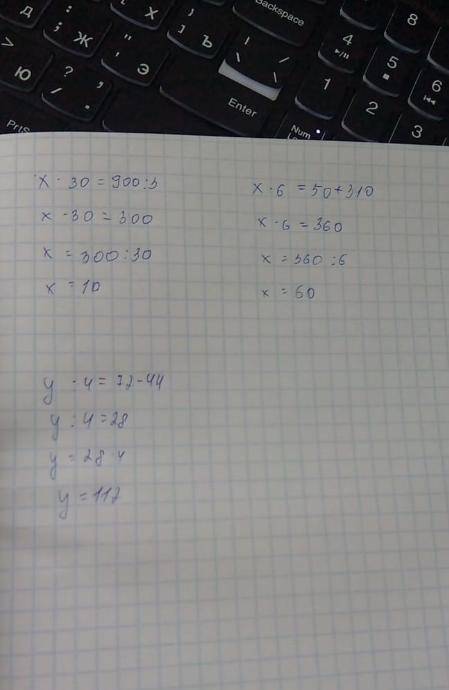 Д
Ж
Х
Ъ
Э
Ю
Backspace
Enter
PrtS
Num
1
2
3
4
5
6
8
x · 30 = 900 : 3
x · 30 = 300
x = 300 : 30
x = 10
x · 6 = 50 + 310
x · 6 = 360
x = 360 : 6
x = 60
y : 4 = 72 - 44
y : 4 = 28
y = 28 · 4
y = 112